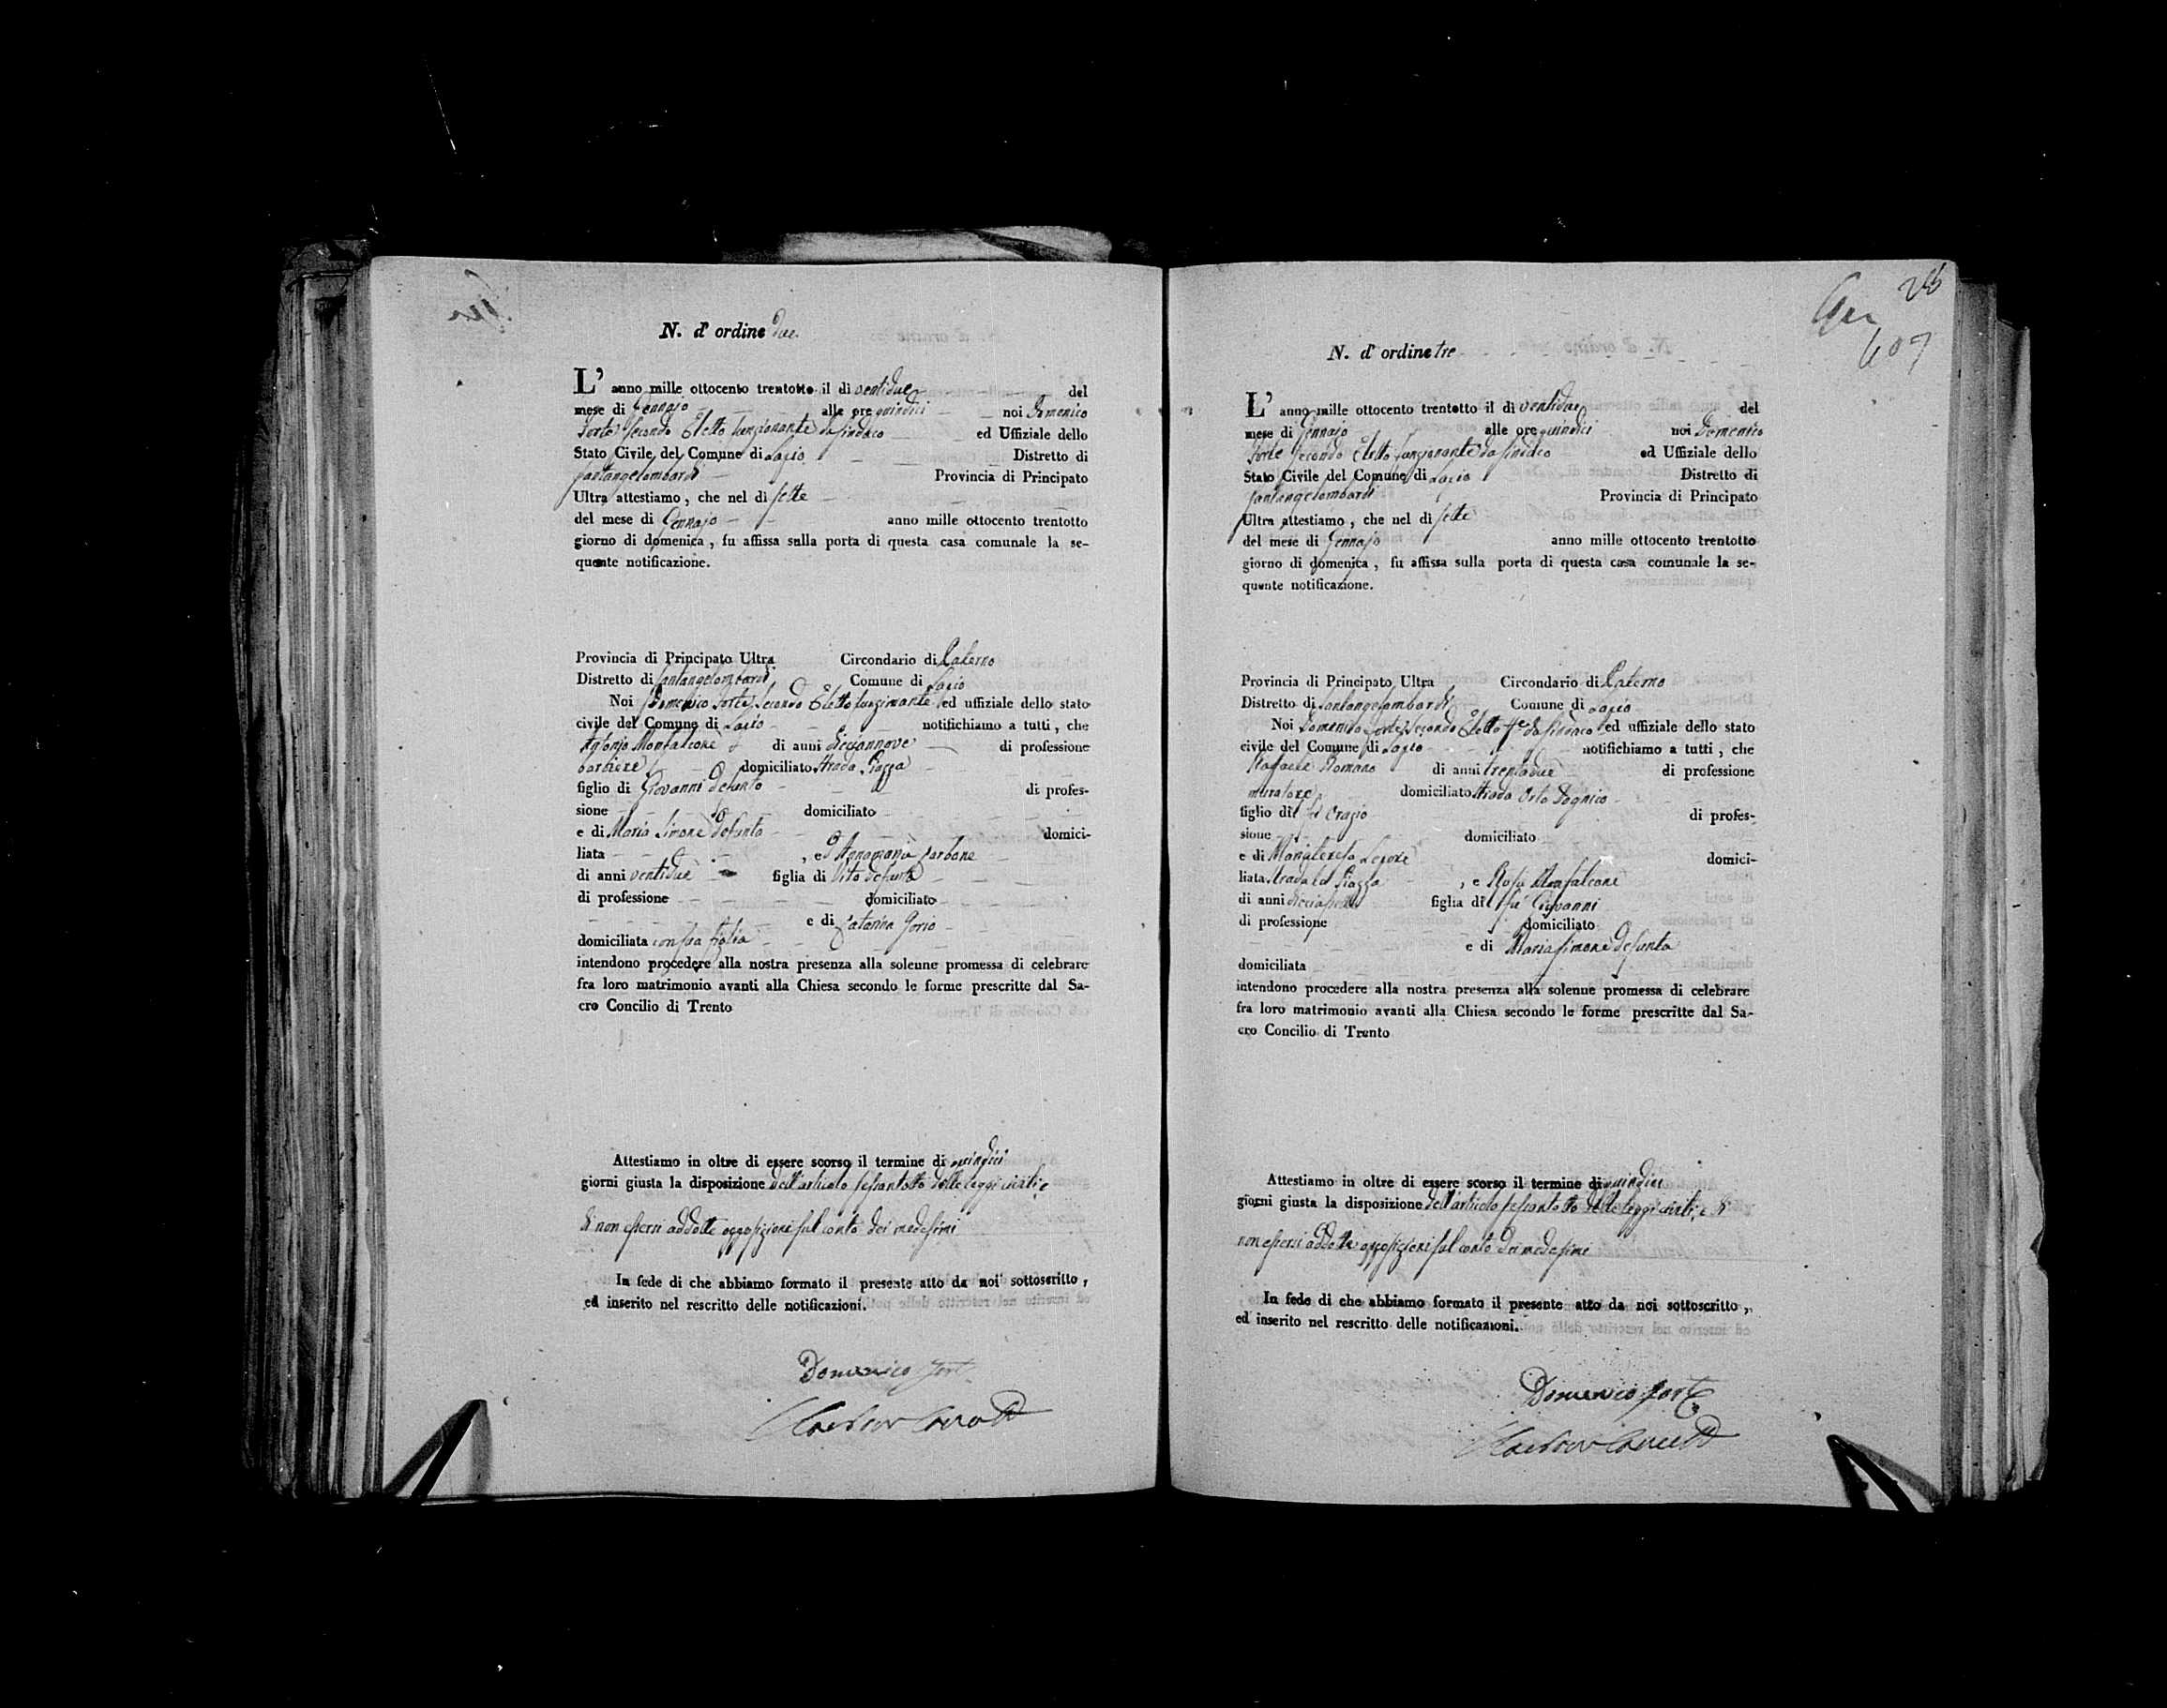 N. d' ordine due.
L' anno mille ottocento trentotto il dì ventidue del
mese di Gennajo alle ore quindici noi Domenico
Forte Secondo Eletto funzionante da Sindaco ed Uffiziale dello
Stato Civile del Comune di Lapio Distretto di
Santangelombardi Provincia di Principato
Ultra attestiamo, che nel dì sette
del mese di Gennajo anno mille ottocento trentotto
giorno di domenica, fu affissa sulla porta di questa casa comunale la se-
quente notificazione.
Provincia di Principato Ultra Circondario di Paterno
Distretto di Santangelombardi Comune di Lapio
Noi Domenico Forte Secondo Eletto funzionante ed uffiziale dello stato
civile del Comune di Lapio notifichiamo a tutti, che
Antonio Monfalcone di anni diciannove di professione
barbiere domiciliato Strada Piazza
figlio di Giovanni defunto di profes-
sione domiciliato
e di Maria Simone defunta domici-
liata , e Annamaria Carbone
di anni ventidue figlia di Vito defunto
di professione domiciliato
e di Catarina Iorio
domiciliata con sua figlia
intendono procedere alla nostra presenza alla solenne promessa di celebrare
fra loro matrimonio avanti alla Chiesa secondo le forme prescritte dal Sa-
cro Concilio di Trento
Attestiamo in oltre di essere scorso il termine di quindici
giorni giusta la disposizione dell'articolo sessantotto delle leggi civili, e
di non essersi addotte opposizioni sul conto dei medesimi
In fede di che abbiamo formato il presente atto da noi sottoscritto,
ed inserito nel rescritto delle notificazioni.
Domenico Forte
28
607
N. d' ordine tre
L' anno mille ottocento trentotto il dì ventidue del
mese di Gennajo alle ore quindici noi Domenico
Forte Secondo Eletto funzionante da Sindaco ed Uffiziale dello
Stato Civile del Comune di Lapio Distretto di
Santangelombardi Provincia di Principato
Ultra attestiamo, che nel dì sette
del mese di Gennajo anno mille ottocento trentotto
giorno di domenica, fu affissa sulla porta di questa casa comunale la se-
quente notificazione.
Provincia di Principato Ultra Circondario di Paterno
Distretto di Santangelombardi Comune di Lapio
Noi Domenico Forte Secondo Eletto ff.e da Sindaco ed uffiziale dello stato
civile del Comune di Lapio notifichiamo a tutti, che
Raffaele Romano di anni trentadue di professione
muratore domiciliato Strada Orto
figlio di fu Orazio di profes-
sione domiciliato
e di Mariateresa Lepore domici-
liata Strada la Piazza , e Rosa Monfalcone
di anni figlia di fu Giovanni
di professione domiciliato
e di Maria Simone defunta
domiciliata
intendono procedere alla nostra presenza alla solenne promessa di celebrare
fra loro matrimonio avanti alla Chiesa secondo le forme prescritte dal Sa-
cro Concilio di Trento
Attestiamo in oltre di essere scorso il termine di quindici
giorni giusta la disposizione dell'articolo sessantotto delle leggi civili, e di
non essersi addotte opposizioni sul conto dei medesimi
In fede di che abbiamo formato il presente atto da noi sottoscritto,
ed inserito nel rescritto delle notificazioni.
Domenico Forte